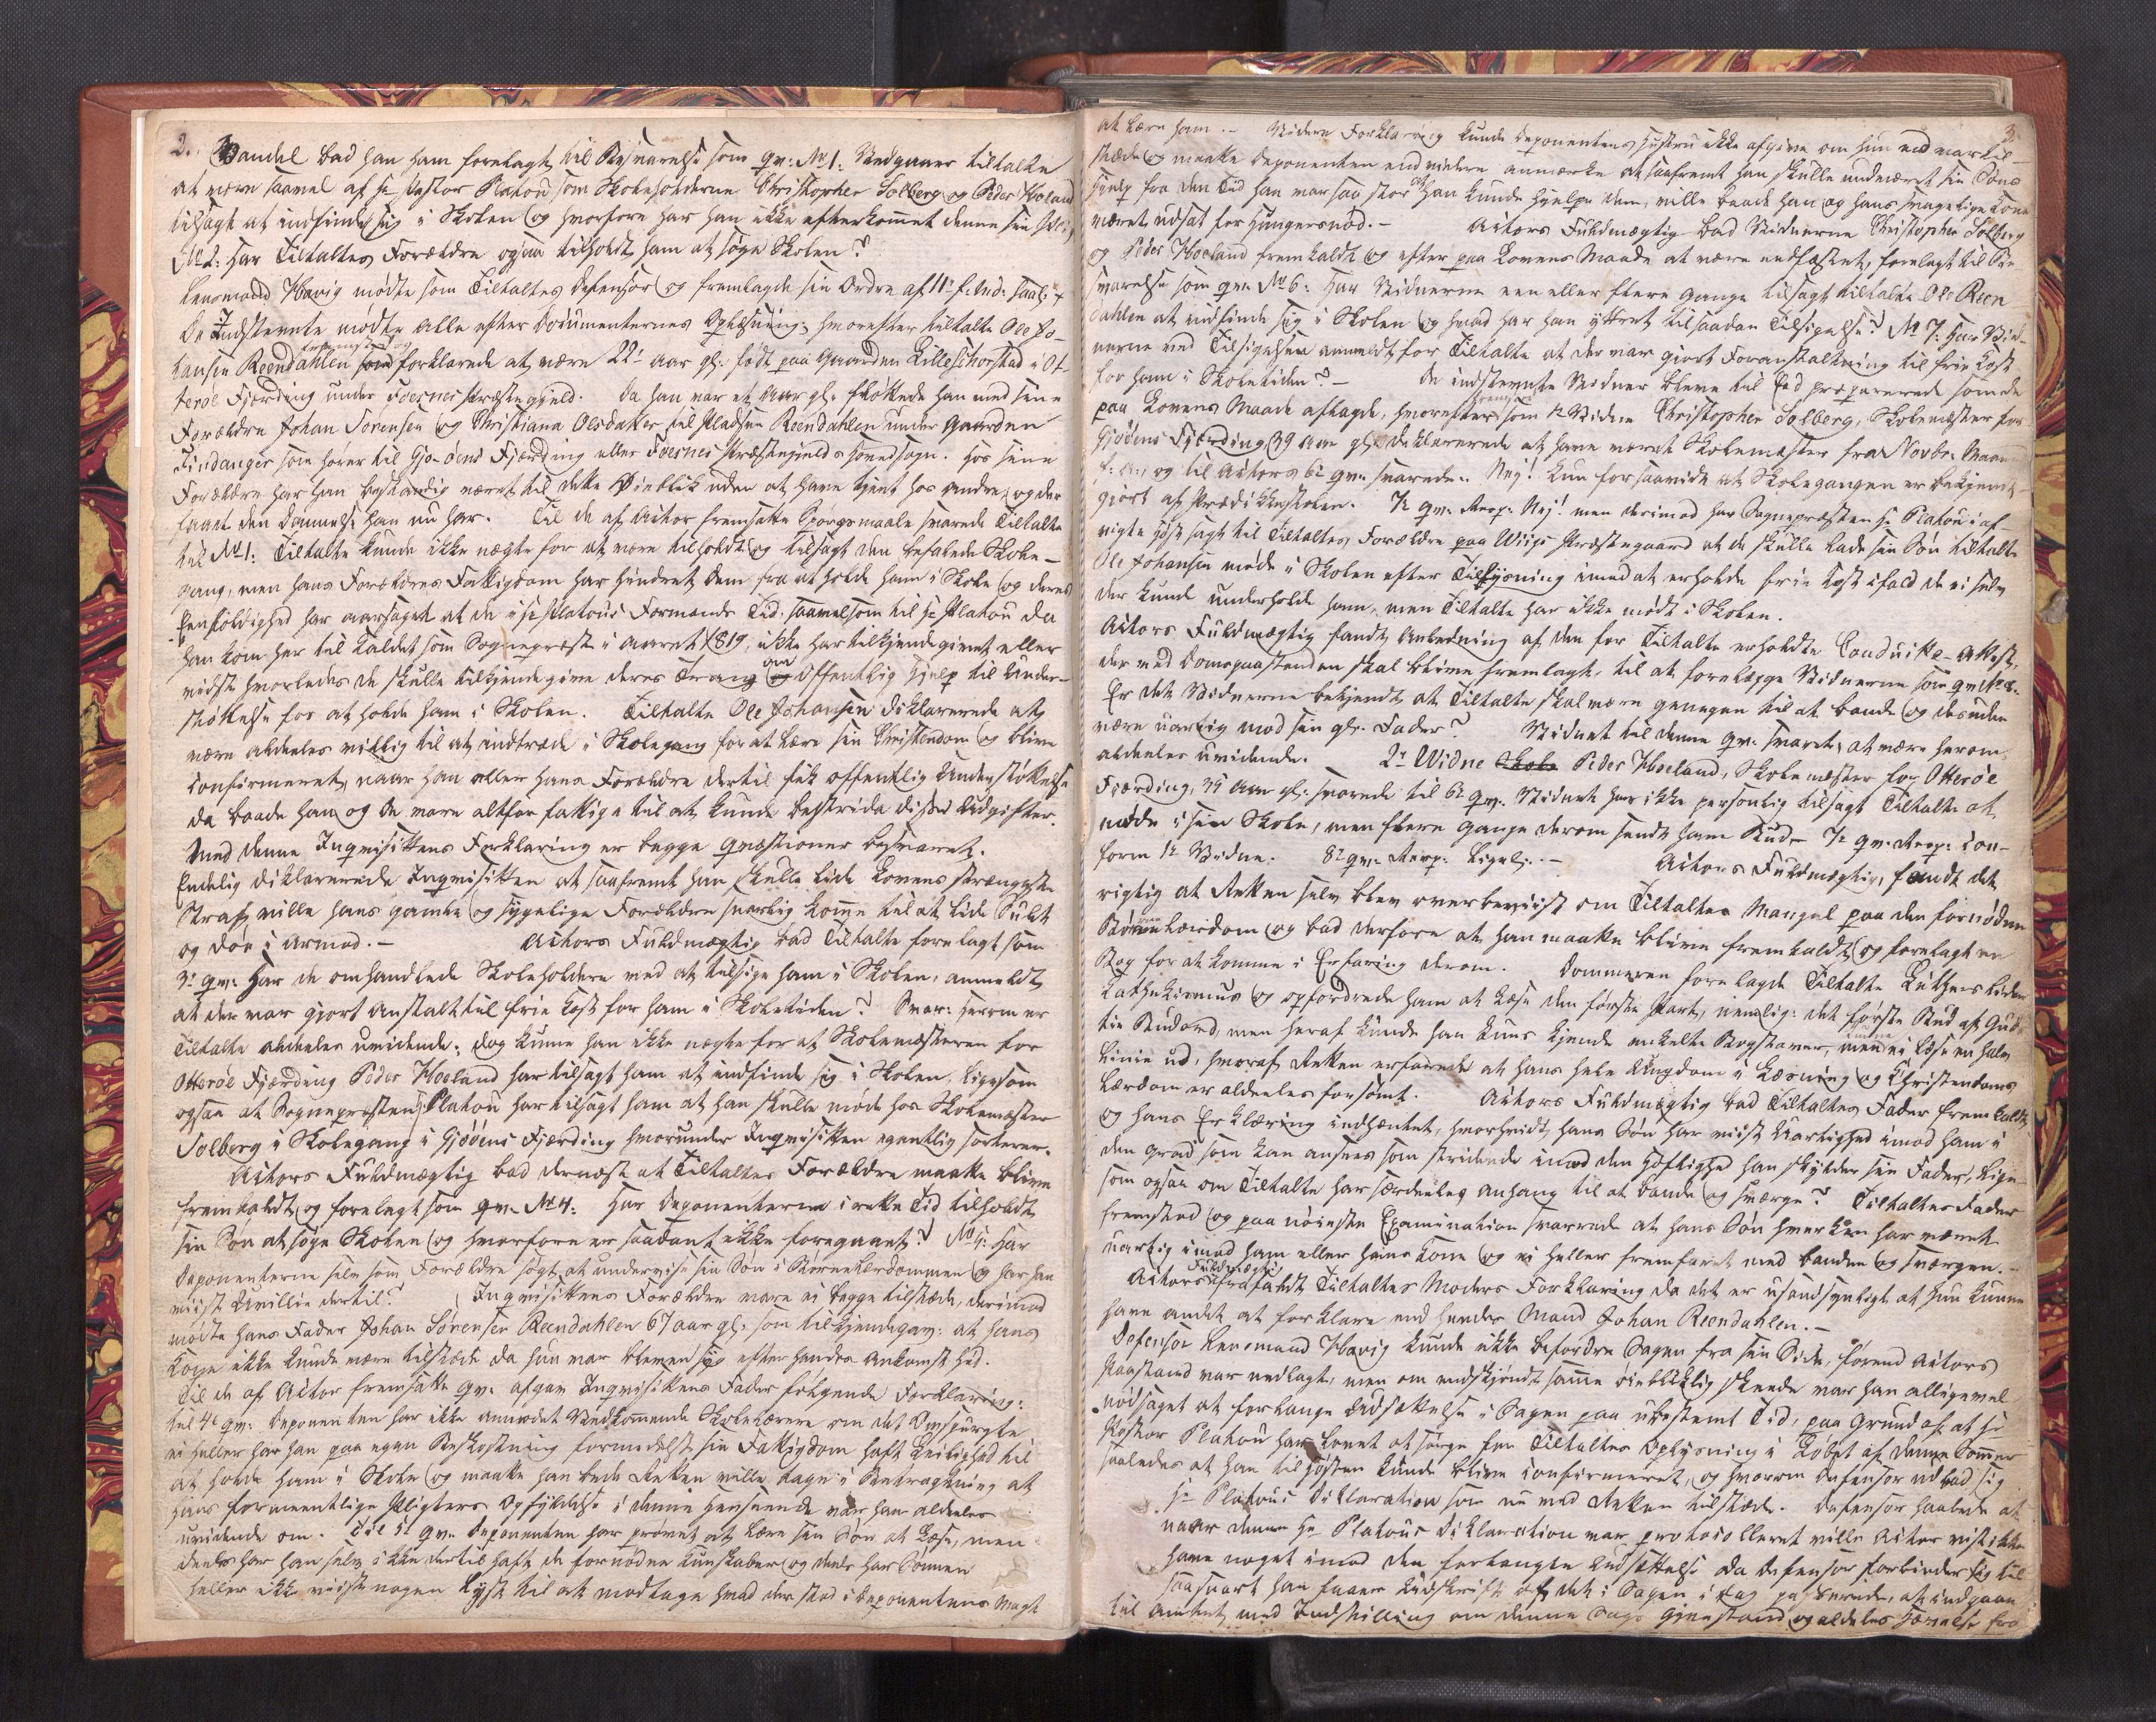 2.
Vandel bad han ham forelagt til Besvarelse som qv: No 1: Vedgaaer tiltalte
at være saavel af Hr Pastor Platou som Skoleholderne Christopher Solberg og Peder Hoeland
tilsagt at indfinde sig i Skolen og hvorfore har han ikke efterkommet denne sin Pligt,
No 2: Har Tiltaltes Forældre ogsaa tilholdt ham at søge Skolen?
Lensmand Havig mødte som Tiltaltes Defensor og fremlagde sin Ordre af 11te f: Md: saal:
De Indstevnte mødte alle efter Documenternes Oplæsning, hvorefter tiltalte Ole Jo-
fremstod og
hansen Reendahlen som forklarede at være 22 aar gl: født paa Gaarden Lilleschorstad i Ot-
terøe Fjerding under Foesnes Præstegjeld. Da han var et Aar gl: fløttede han med sine
Forældre Johan Sørensen og Christiana Olsdatter til Pladsen Reendahlen under Gaarden
Findanger som hører til Gjøens Fjerding eller Foesnes Præstegjelds Hovedsogn. Hos sine
Forældre har han bestandig været til dette Øieblik uden at have tjent hos andre, og der
faaet den Dannelse han nu har. Til de af Actor fremsatte Spørgsmaale svarede Tiltalte
til No 1: Tiltalte kunde ikke nægte for at være tilholdt og tilsagt den befalede Skole-
gang, men hans Forældres Fattigdom har hindret dem fra at holde ham i Skole og deres
Eenfoldighed har aarsaget at de i Hr Platous Formands Tid, saavelsom til Hr Platou da
han kom her til Kaldet som Sognepræst i Aaret 1819, ikke har tilkjendegivet eller
vidste hvorledes de skulle tilkjendegive deres Trang om Offentlig Hjelp til Under-
støttelse for at holde ham i Skolen. Tiltalte Ole Johansen declarerede at
være aldeles villig til at indtræde i Skolegang for at lære sin Christendom og blive
confirmeret, naar han eller hans Forældre dertil fik offentlig Understøttelse
da baade han og de vare altfor fattige til at kunde bestride disse Udgifter.
Med denne Inqvisittens Forklaring er begge Qvæstioner besvaret.
Endelig declarerede Inqvisitten at saafremt han skulle lide Lovens strængeste
Straf, ville hans gamle og sygelige Forældre snarlig komme til at lide Sult
og døe i Armod. - Actors Fuldmægtig bad Tiltalte forelagt som
3: qv: Har de omhandlede Skoleholdere ved at tilsige ham i Skolen, anmeldt
at der var gjort Anstalt til frie Kost for ham i Skoletiden? Svar: herom er
Tiltalte aldeles uvidende; dog kunne han ikke nægte for at Skolemesteren for
Otterøe Fjerding Peder Hoeland har tilsagt ham at indfinde sig i Skolen, ligesom
ogsaa at Sognepræsten Platou har tilsagt ham at han skulle møde hos Skolemester
Solberg i Skolegang i Gjøens Fjerding hvorunder Inqvisitten egentlig sorterer.
Actors Fuldmægtig bad dernæst at Tiltaltes Forældre maatte blive
fremkaldt og forelagt som qv. No 4: Har Deponenterne i rette Tid tilholdt
sin Søn at søge Skolen og hvorfore er saadant ikke foregaaet? No 5: Har
Deponenterne selv som Forældre søgt at undervise sin Søn i Børnelærdommen og har han
viist Uvillie dertil? Inqvisittens Forældre vare ei begge tilstæde, derimod
mødte hans Fader Johan Sørensen Reendahlen 67 aar gl: som tilkjendegav: at hans
Kone ikke kunde være tilstæde da hun var bleven syg efter hendes Ankomst hid.
Til de af Actor fremsatte qv. afgav Inqvisitens Fader følgende Forklaring:
til 4de qv: Deponenten har ikke anmodet Vedkommende Skolelærere om det Omspurgte
ei heller har han paa egen Bekostning formedelst sin Fattigdom haft Leilighed til
at holde ham i Skole og maatte han bede Retten ville tage i Betragtning at
hans formeentlige Pligters Opfyldelse i denne Henseende var han aldeles
uvidende om. Til 5te qv. Deponenten har prøvet at lære sin Søn at læse, men
deels har han selv ikke dertil haft de fornødne Kundskaber og deels har Sønnen
heller ikke viist nogen Lyst til at modtage hvad der stod i Deponentens Magt
3.
at lære ham. - Videre Forklaring kunde Deponentens Hustru ikke afgive om hun end var til-
stæde og maatte Deponenten end videre anmærke at saafremt han skulle undværet sin Søns
Hjelp fra den Tid han var saa stor at han kunde hjelpe dem, ville baade han og hans svagelige Kone
været udsat for Hungersnød. - Actors Fuldmægtig bad Vidnerne Christopher Solberg
og Peder Hoeland fremkaldt og efter paa Lovens Maade at være eedfæstet, forelagt til Be-
svarelse som qv. No 6: Har Vidnerne een eller flere Gange tilsagt tiltalte Ole Reen-
dahlen at indfinde sig i Skolen og hvad har han yttret til saadan Tilsigelse? No 7: Har Vid-
nerne ved Tilsigelsen anmeldt for Tiltalte at der var gjort Foranstaltning til frie Kost
for ham i Skoletiden? - De indstevnte Vidner bleve til Eed præparerede som de
fremstod
paa Lovens Maade aflagde, hvorefter som 1te Vidne Christopher Solberg, Skolemester for
Gjøens Fjerding 39 Aar gl: declarerede at have været Skolemester fra Novbr. Maaned
f: A:, og til Actors 6te qv. svarede: Nej! kun forsaavidt at Skolegangen er bekjendt-
gjort af Prædikestolen. 7de qv. Resp: Nej! men derimod har Sognepræsten Hr Platou i af-
vigte Høst sagt til Tiltaltes Forældre paa Wiigs Præstegaard at de skulle lade sin Søn tiltalte
Ole Johansen møde i Skolen efter Tillysning imod at erholde frie Kost ifald de ei selv
der kunde underholde ham, men Tiltalte har ikke mødt i Skolen.
Actors Fuldmægtig fandt Anledning af den for Tiltalte erholdte Conduite-Attest,
der med Domspaastanden skal blive fremlagt, til at forelægge Vidnerne som qv No 8.
Er det Vidnerne bekjendt at Tiltalte skal være genegen til at bande og desuden
være uartig mod sin gl. Fader? Vidnet til denne qv. svaret, at være herom
aldeles uvidende. 2det Widne Skole Peder Hoeland, Skolemester for Otterøe
Fjerding, 35 Aar gl: svarede til 6te qv. Vidnet har ikke personlig tilsagt Tiltalte at
møde i sin Skole, men flere Gange derom sendt ham Bud. - 7de qv. Resp: con-
form 1te Vidne. 8de qv. Resp: ligel: - Actors Fuldmægtig fandt det
rigtig at Retten selv blev overbeviist om Tiltaltes Mangel paa den fornødne
Børnelærdom og bad derfore at han maatte blive fremkaldt og forelagt en
Bog for at komme i Erfaring derom. Dommeren forelagde Tiltalte Luthers liden
Cathekismus og opfordrede ham at læse den første Part, nemlig: det første Bud af Guds
kunde
tie Budord, men heraf kunde han kuns kjende enkelte Bogstaver, men ei læse en halv
Linie ud, hvoraf Retten erfarede at hans hele Ungdom i Læsning og Christendoms
Lærdom er aldeles forsømt. Actors Fuldmægtig bad Tiltaltes Fader fremkaldt
og hans Erklæring indhæntet, hvorvidt hans Søn har viist Uartighed imod ham i
den Grad som kan ansees som stridende imod den Høflighed han skylder sin Fader, lige-
som ogsaa om Tiltalte har særdeeles anhang til at bande og sværge? Tiltaltes Fader
fremstod og paa nøieste Examination svarede at hans Søn hverken har været
uartig imod ham eller hans Kone og ei heller fremfaret med Banden og Sværgen. -
Fuldmægtig
Actors frafaldt Tiltaltes Moders Forklaring da det er usandsynligt at hun kunne
have andet at forklare end hendes Mand Johan Reendahlen. -
Defensor Lensmand Havig kunde ikke befordre Sagen fra sin Side, førend Actors
Paastand var nedlagt, men om endskjøndt samme øieblikkelig skeede var han alligevel
nødsaget at forlange Udsættelse i Sagen paa ubestemt Tid, paa Grund af at Hr
Pastor Platou har lovet at sørge for Tiltaltes Oplysning i Løbet af denne Sommer
saaledes at han til Høsten kunde blive confirmeret, og hvorom Defensor udbad sig
Hr Platous Declaration som nu ved Retten tilstæde. Defensor haabede at
naar denne Hr Platous Declaration var protocolleret ville Actor vist ikke
have noget imod den forlangte Udsættelse da Defensor forbinder sig til
saasnart han faaer Udskrift af det i Sagen i dag passerede, at indgaae
til Amtet med Indstilling om denne Sags Gjenstand og aldeles Hævelse fra